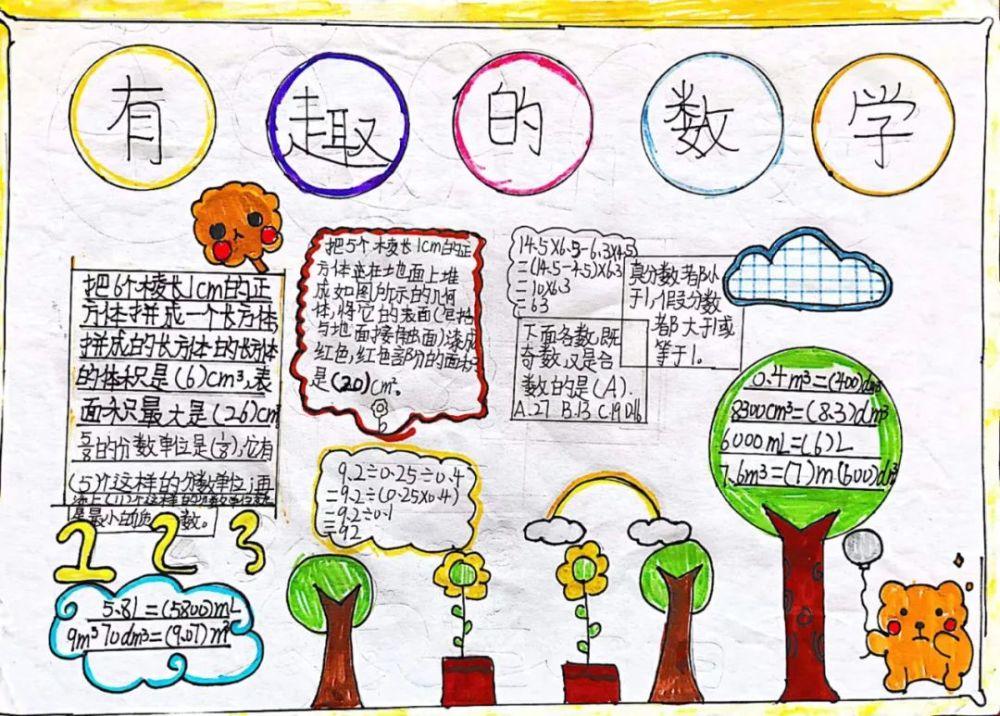 有趣的数学
把6个棱长1cm的正
方体拼成一个长方体,
拼成的长方体的长方体
的体积是(6)cm³,表
面积最大是(26)cm
的分数单位是(1/8),它有
(5)个这样的分数单位,再
是最小的质数。
把5个棱长1cm的正
方体并在地面上堆
成如图所示的几何
体,将它的表面(包括
与地面接触面)漆成
红色,红色部分的面积
是(20)cm².
14.5×6.3-6.3×4.5
=(14.5-4.5)×6.3
=10×6.3
=63
真分数都小
于1,假分数
都大于1或
等于1.
下面各数,既
奇数,又是合
数的是(A).
A.27 B.13 C.19 D.16
0.4m³=(400)dm³
8300cm³=(8.3)dm³
6000mL=(6)L
7.6m³=(7)m(600)dm³
9.2÷0.25÷0.4
=9.2÷(0.25×0.4)
=9.2÷0.1
=92
1 2 3
5.8L=(5800)mL
9m³70dm³=(9.07)m³